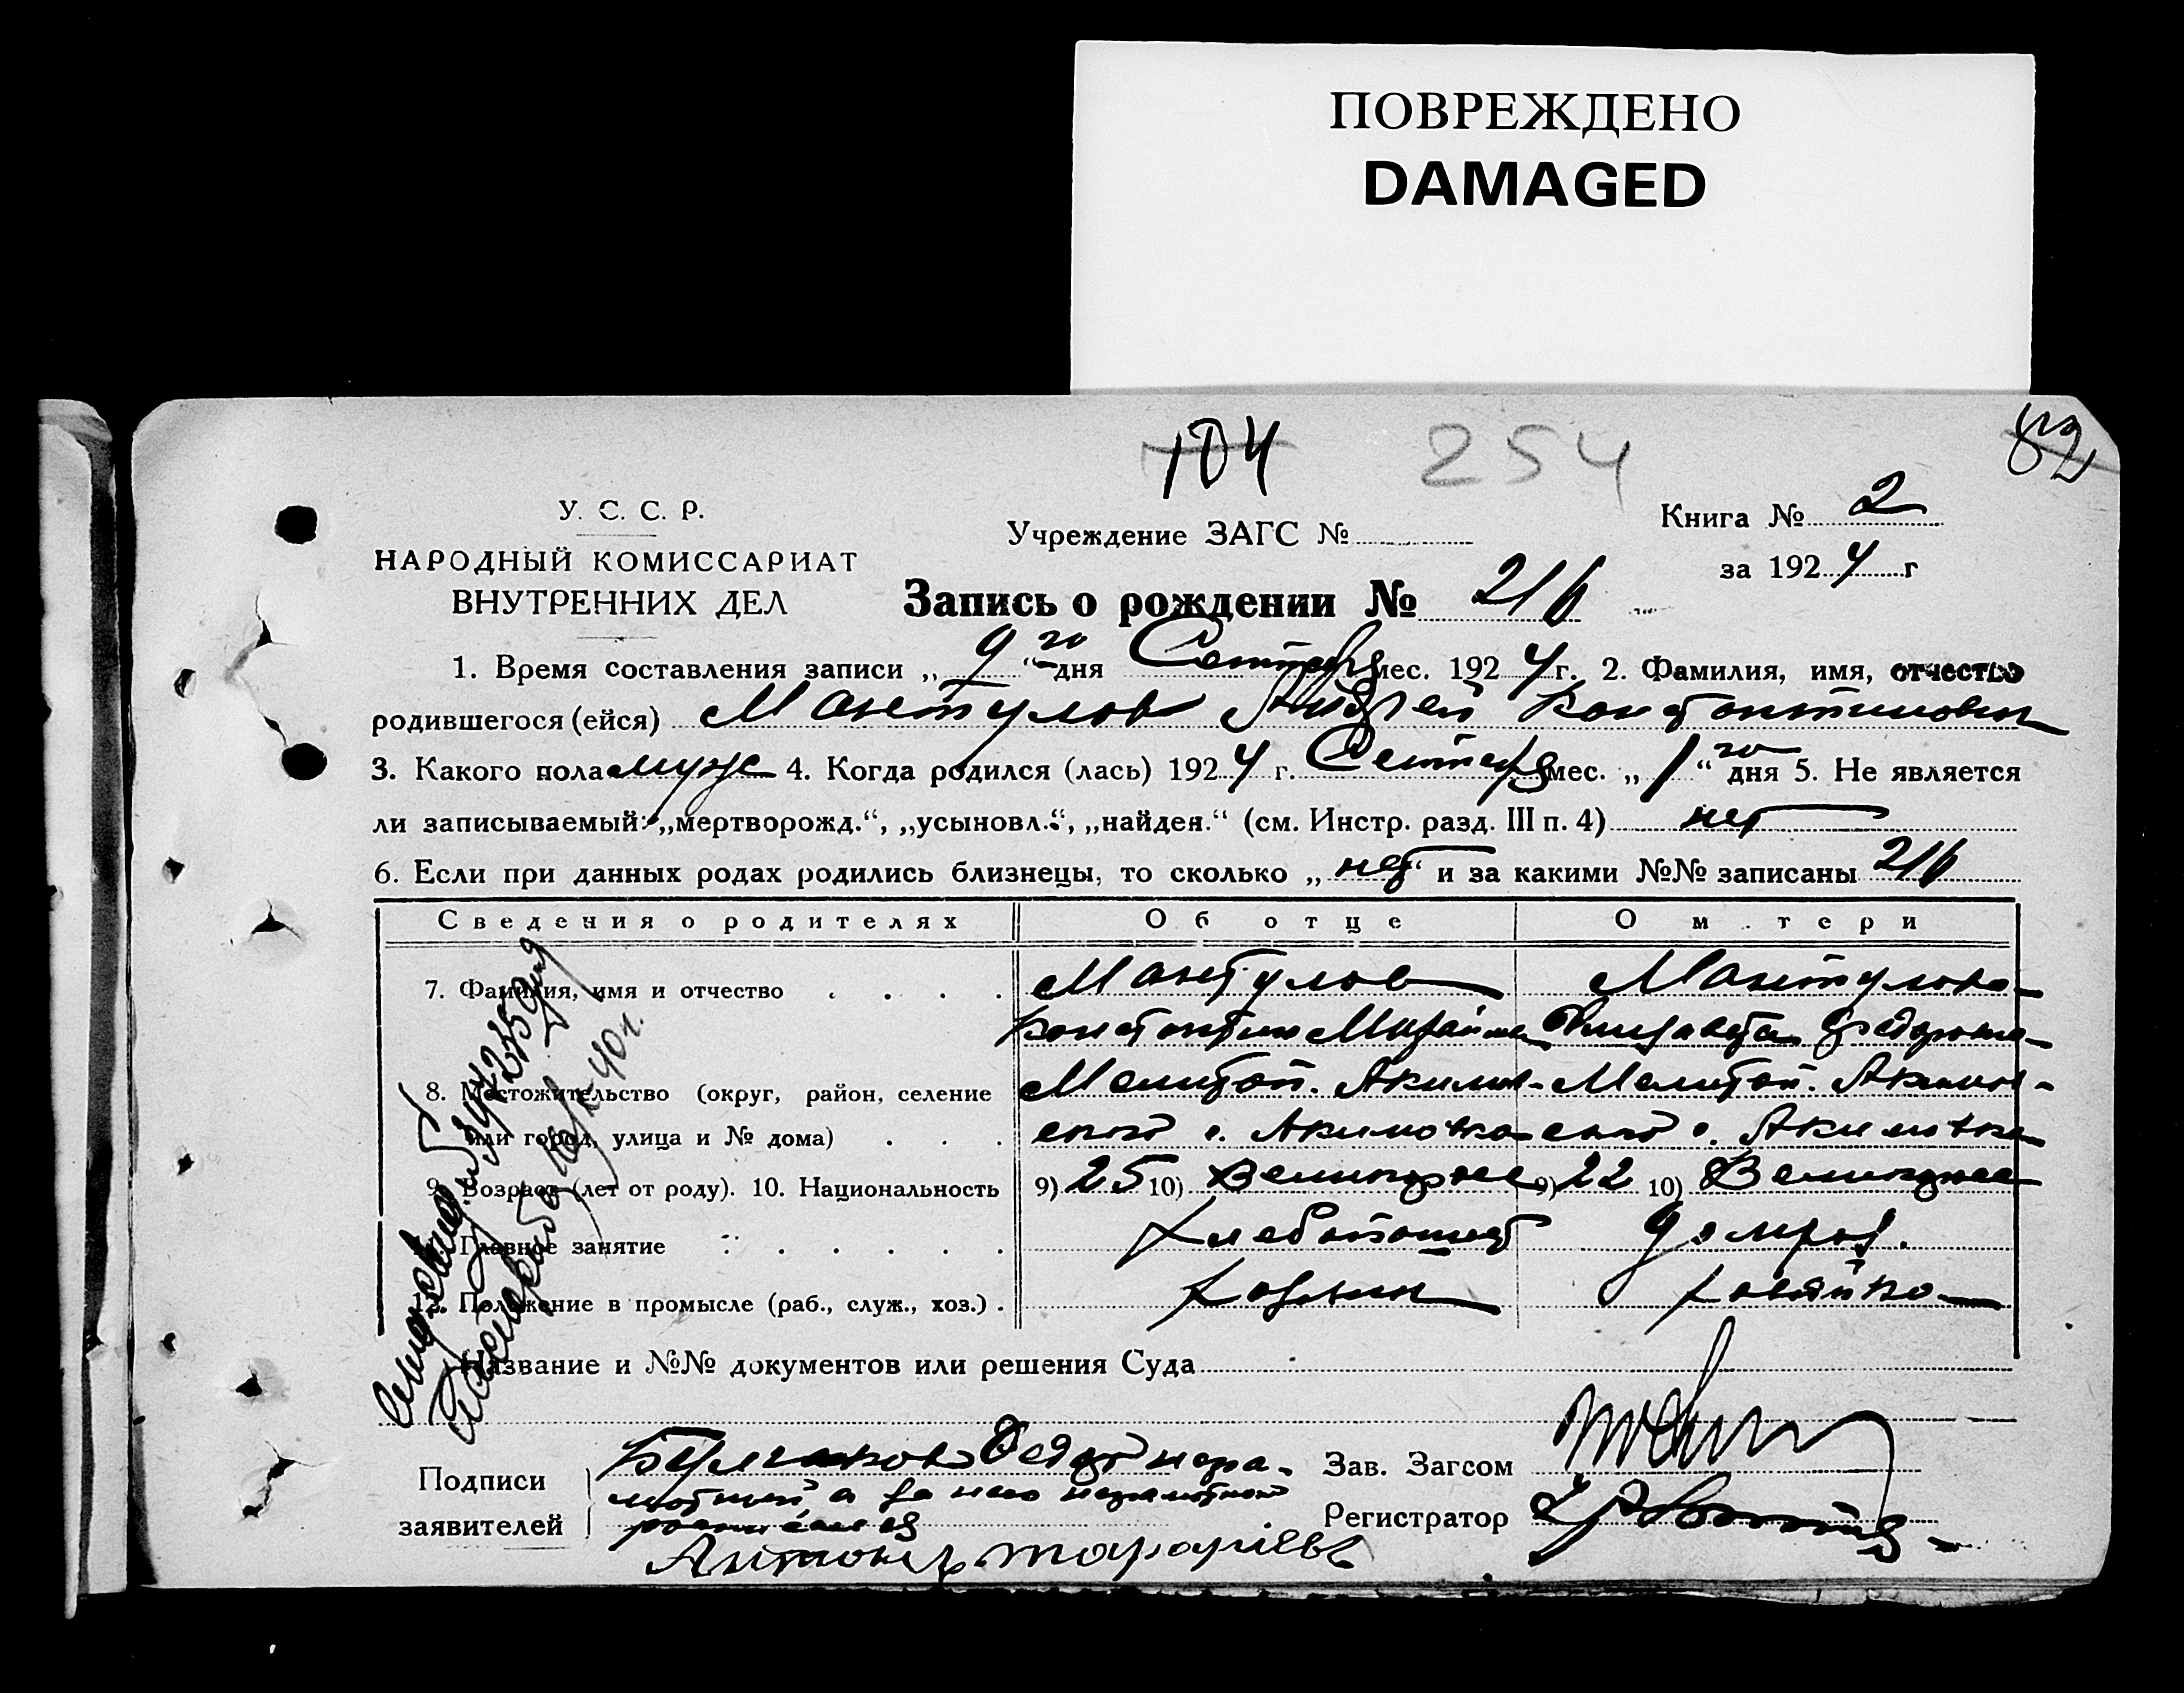 ПОВРЕЖДЕНО
DAMAGED
104 254 82
У. С. С. Р.
НАРОДНЫЙ КОМИССАРИАТ
ВНУТРЕННИХ ДЕЛ
Учреждение ЗАГС №
Книга № 2
за 1924 г
Запись о рождении № 216
1. Время составления записи „9“ го дня Сентября мес. 1924 г. 2. Фамилия, имя, отчество
родившегося (ейся) Мантулов Андрей Константинович
3. Какого пола муж 4. Когда родился (лась) 1924 г. Сентября мес. „1“ го дня 5. Не является
ли записываемый: „мертворожд.“, „усыновл.“, „найден.“ (см. Инстр. разд. III п. 4) нет
6. Если при данных родах родились близнецы, то сколько „нет“ и за какими №№ записаны 216
Сведения о родителях Об отце О м тери
7. Фамилия, имя и отчество Мантулов Мантулова
Константин Михайл Елизавета Федоровна
8. Местожительство (округ, район, селение Мелитоп. Акимов- Мелитоп. Акимов-
или город, улица и № дома) ский с. Акимовка ский с. Акимовка
9. Возраст (лет от роду). 10. Национальность 9) 25 10) Великоросс 9) 22 10) Великоросс
Главное занятие Хлебопашец домраб.
12. Положение в промысле (раб., служ., хоз.) Хозяин хозяйка
Название и №№ документов или решения Суда
Подписи
заявителей
Федор негра-
мотный а за него неграмотного
росписался
Антон
Зав. Загсом
Регистратор